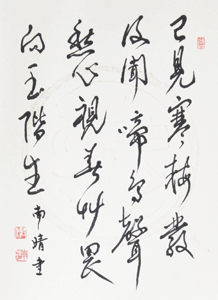 已見寒梅發
復聞啼鳥聲
愁心視春艸畏
向玉階生 南靖書